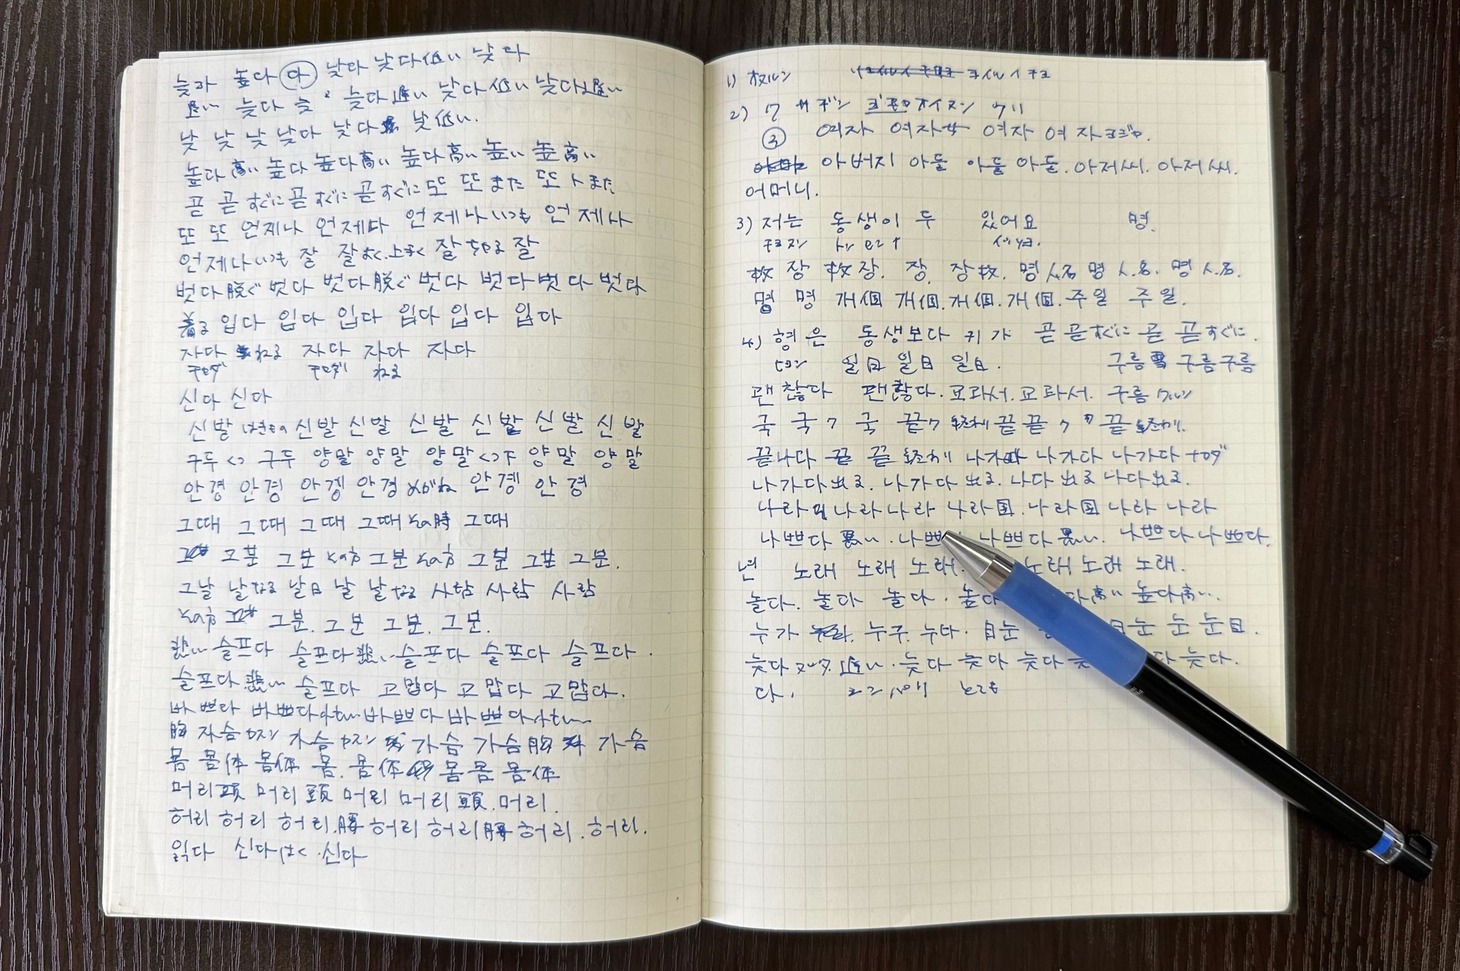 늦라 높다 다 낮다 낮다 低い 낮다
遅い 늦다 늦 늦다 遅い 낮다 低い 낮다 遅い
낮 낮 낮 낮다 낮다 낮 低い.
높다 高い 높다 높다 高い 높다 高い 높い 높 高い
곧 곧 すぐに 곧 すぐに 곧 すぐに 또 또 また 또 また
또 또 언제나 언제다 언제나 いつも 언제나
언제나 いつも 잘 잘 よく. 上手く 잘 잘
벗다 脱ぐ 벗다 벗다 脱ぐ 벗다 벗다 벗다 벗다
着る 입다 입다 입다 입다 입다 입다
자다 ねる 자다 자다 자다
チャダ チャダ ねる
신다 신다
신발 はきもの 신발 신발 신발 신발 신발 신발
구두 くつ 구두 양말 양말 양말 くつ下 양말 양말
안경 안경 안경 안경 めがね 안경 안경
그때 그때 그때 그때 その時 그때
그분 그분 その方 그분 その方 그분 그분 그분.
그날 날 날 日 날 날 사람 사람 사람
その方 그분. 그분 그분. 그분.
悲い 슬프다 슬프다 悲い 슬프다 슬프다 슬프다.
슬프다 悲い 슬프다 고맙다 고맙다 고맙다.
바쁘다 바쁘다 바쁘다 바쁘다
胸 가슴 カスン 가슴 カスン 가슴 가슴 胸 가슴
몸 몸 体 몸 体 몸. 몸 体 몸 몸 몸 体
머리 頭 머리 頭 머리 머리 頭. 머리.
허리 허리 허리. 腰 허리 허리 腰 허리. 허리.
읽다 신다 はく. 신다
1) 枚ルン
2) ワ サギン オイヌン
③ 여자 여자 女 여자 여자
아버지 아들 아들 아들. 아저씨. 아저씨.
어머니.
3) 저는 동생이 두 있어요 명.
枚 장 枚 장. 장. 장 枚. 명 人名 명 人名. 명 人名.
명 명 개 個 개 個. 개 個. 개 個. 주월 주월.
4) 형은 동생보다 키가 곧 곧 すぐに 곧 곧 すぐに.
ヒョン 일日 일日 일日. 구름 雲 구름 구름
괜찮다 괜찮다. 교과서. 교과서. 구름 クルン
국 국 국 끝 끝 끝 끝
끝나다 끝 끝 나가다 나가다 나가다
나가다 出る. 나가다 出る. 나다 出る 나다 出る.
나라 国 나라 나라 나라 国. 나라 国 나라 나라
나쁘다 悪い. 나쁘 나쁘다 悪い. 나쁘다 나쁘다.
년 노래 노래 노래. 노래 노래 노래.
놀다. 놀다 놀다. 높다 다 高い 높다 高い.
누가 누구. 누다. 目 눈 目 눈 눈 눈 目.
늦다 ヌッタ 遅い. 늦다 늦다 늦다 다 늦다.
다.